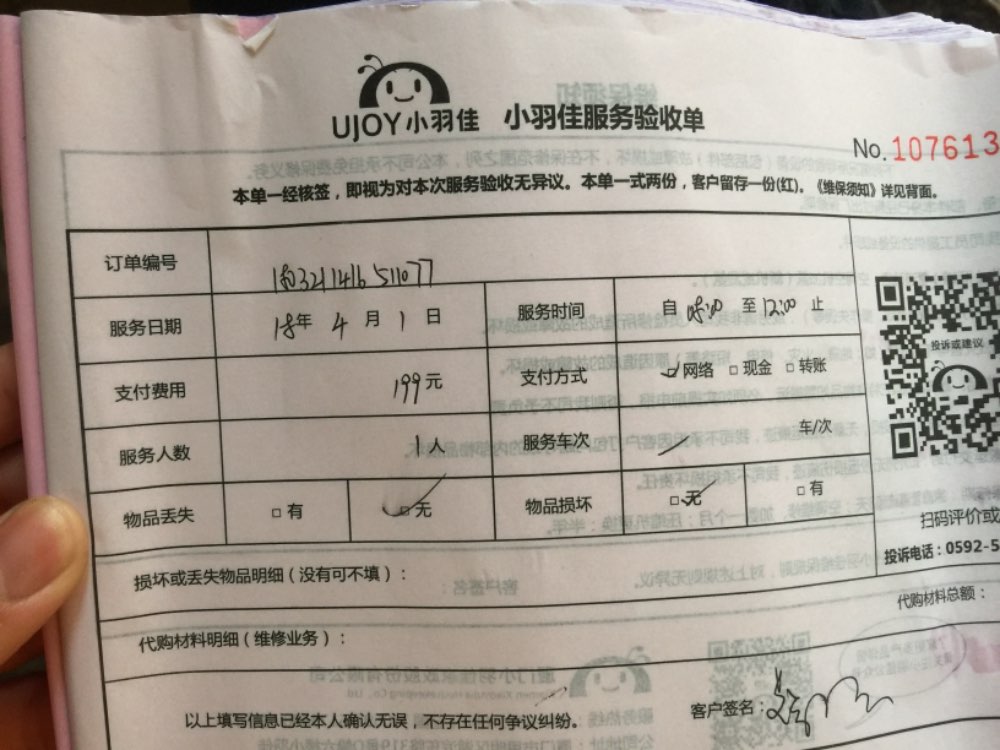 UJOY小羽佳 小羽佳服务验收单
No.107613
本单一经核签,即视为对本次服务验收无异议。本单一式两份,客户留存一份(红)。《维保须知》详见背面。
订单编号
服务日期 18年 4 月 1 日 服务时间 自 08:00 至 12:00 止
支付费用 199元 支付方式 网络 □现金 □转账
服务人数 1人 服务车次 车/次
物品丢失 □有 □无 物品损坏 □无 □有
投诉或建议
扫码评价或
投诉电话:0592-5
损坏或丢失物品明细(没有可不填):
代购材料总额:
代购材料明细(维修业务):
以上填写信息已经本人确认无误,不存在任何争议纠纷。 客户签名: